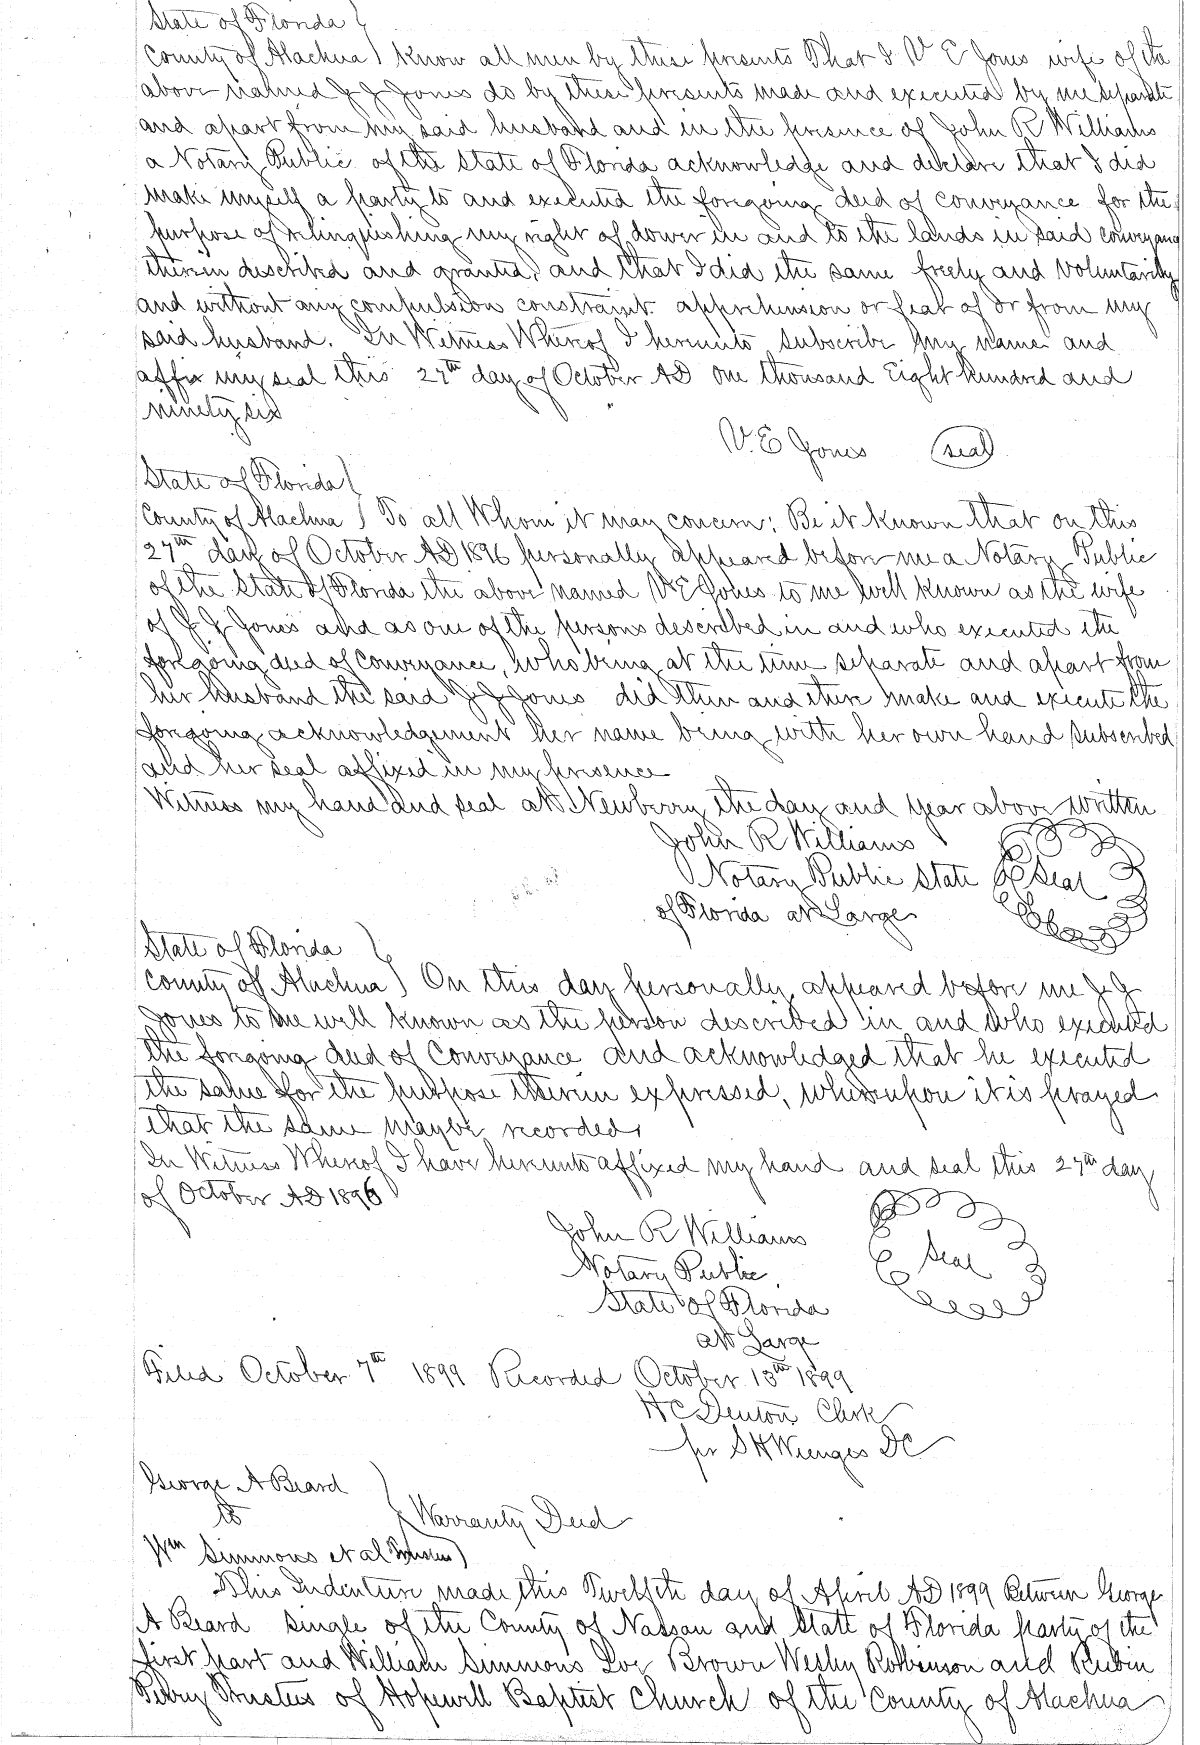 State of Florida }
County of Alachua } Know all men by these presents That I V E Jones wife of the
above named J J Jones do by these presents made and executed by me separate
and apart from my said husband and in the presence of John R Williams
a Notary Public of the State of Florida acknowledge and declare that I did
make myself a party to and executed the foregoing deed of conveyance for the
purpose of relinquishing my right of dower in and to the lands in said conveyanc
therein described and granted, and that I did the same freely and voluntarily
and without any compulsion constraint apprehension or fear of or from my
said husband. In Witness Whereof I hereunto subscribe my name and
affix my seal this 27th day of October AD One thousand Eight Hundred and
ninety six
V. E Jones (seal)
State of Florida }
County of Alachua } To all Whom it may concern: Be it known that on this
27th day of October AD 1896 personally appeared before me a Notary Public
of the State of Florida the above named V E Jones to me well known as the wife
of J J Jones and as one of the persons described in and who executed the
foregoing deed of conveyance, who being at the time separate and apart from
her husband the said J J Jones did then and there make and execute the
foregoing acknowledgement her name being with her own hand subscribed
and her seal affixed in my presence
Witness my hand and seal at Newberry the day and year above written
John R Williams
Notary Public State Seal
of Florida at Large
State of Florida }
County of Alachua } On this day personally appeared before me J J
Jones to me well known as the person described in and who executed
the foregoing deed of Conveyance and acknowledged that he executed
the same for the purpose therein expressed, whereupon it is prayed
that the same maybe recorded,
In Witness Whereof I have hereunto affixed my hand and seal this 27th day
of October AD 1896
John R Williams
Notary Public Seal
State of Florida
at Large
Filed October 7th 1899 Recorded October 13th 1899
H C Denton Clerk
per S H Wienges DC
George A Beard }
to } Warranty Deed
Wm Simmons et al Trustees }
This Indenture made this Twelfth day of April AD 1899 Between George
A Beard single of the County of Nassau and State of Florida party of the
first part and William Simmons Joe Brown Wesley Robbinson and Rubin
Perry Trustees of Hopewell Baptist Church of the County of Alachua